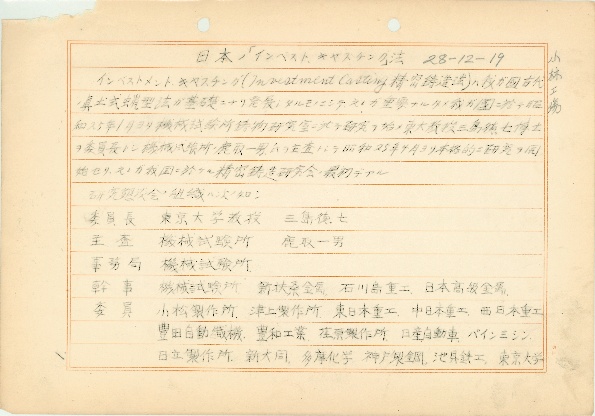 日本ノインベスト、キャスチング法 28-12-19
小林工場
インベストメント、キャスチング(Investment Casting 精密鋳造法)ハ我が国古代
ノ眞土式蝋型法ガ基礎トナリ発展シタルモノニシテ
和25年1月ヨリ機械試験所鋳物研究室ニ於テ研究ヲ始メ東大教授三島徳七博士
ヲ委員長トシ機械試験所ノ鹿取一男ヲ主査トシテ昭和25年9月ヨリ本格的ニ研究ヲ開
始セリ 我国ニ於ケル精密鋳造研究会ノ最初デアル
研究懇談会ノ組織ハ次ノ如シ
委員長 東京大学教授 三島徳七
主査 機械試験所 鹿取一男
事務局 機械試験所
幹事 機械試験所、新扶桑金属、石川島重工、日本高級金属
委員 小松製作所、津上製作所、東日本重工、中日本重工、西日本重工
豊田自動織機、豊和工業、荏原製作所、日産自動車、パインミシン、
日立製作所、新大同、多摩化学、神戸製鋼、池貝鉄工、東京大学